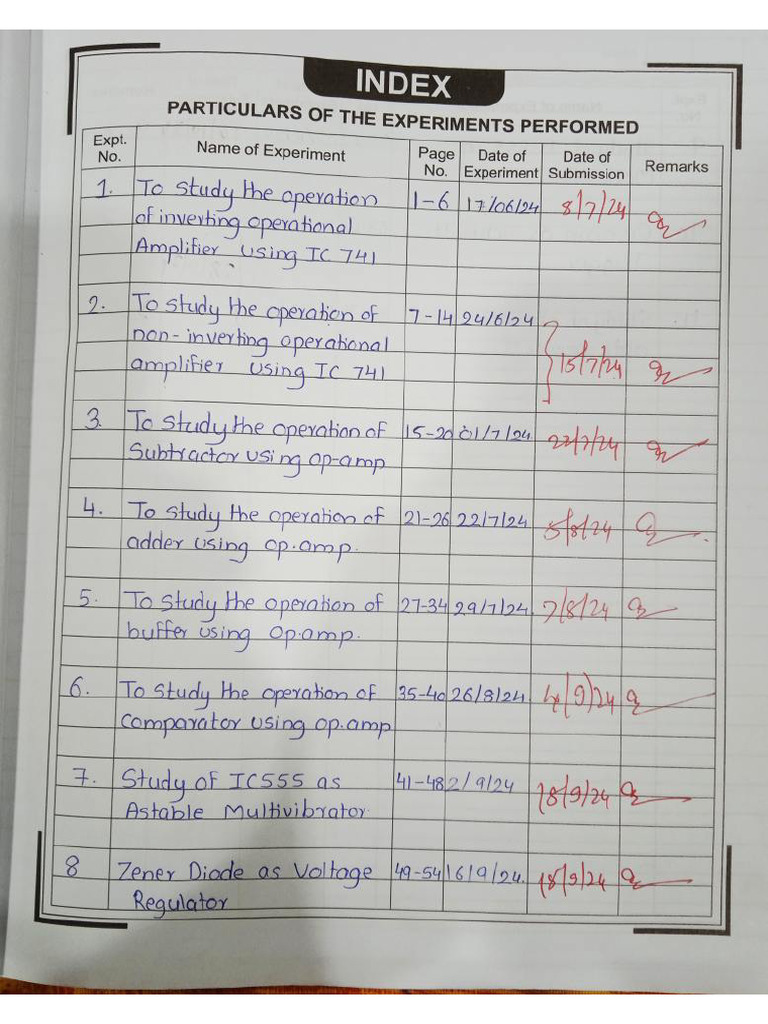 INDEX
PARTICULARS OF THE EXPERIMENTS PERFORMED
Expt. No. Name of Experiment Page No. Date of Experiment Date of Submission Remarks
1. To study the operation 1-6 17/06/24 8/7/24
of inverting operational
Amplifier using IC 741
2. To study the operation of 7-14 24/6/24
non-inverting operational
amplifier using IC 741 15/7/24
3. To study the operation of 15-20 01/7/24 22/7/24
Subtractor using op-amp
4. To study the operation of 21-26 22/7/24 5/8/24
adder using op.amp.
5. To study the operation of 27-34 29/7/24. 7/8/24
buffer using op.amp.
6. To study the operation of 35-40 26/8/24. 4/9/24
comparator using op.amp
7. Study of IC555 as 41-48 2/9/24 18/9/24
Astable Multivibrator.
8 Zener Diode as Voltage 49-54 16/9/24. 18/9/24
Regulator